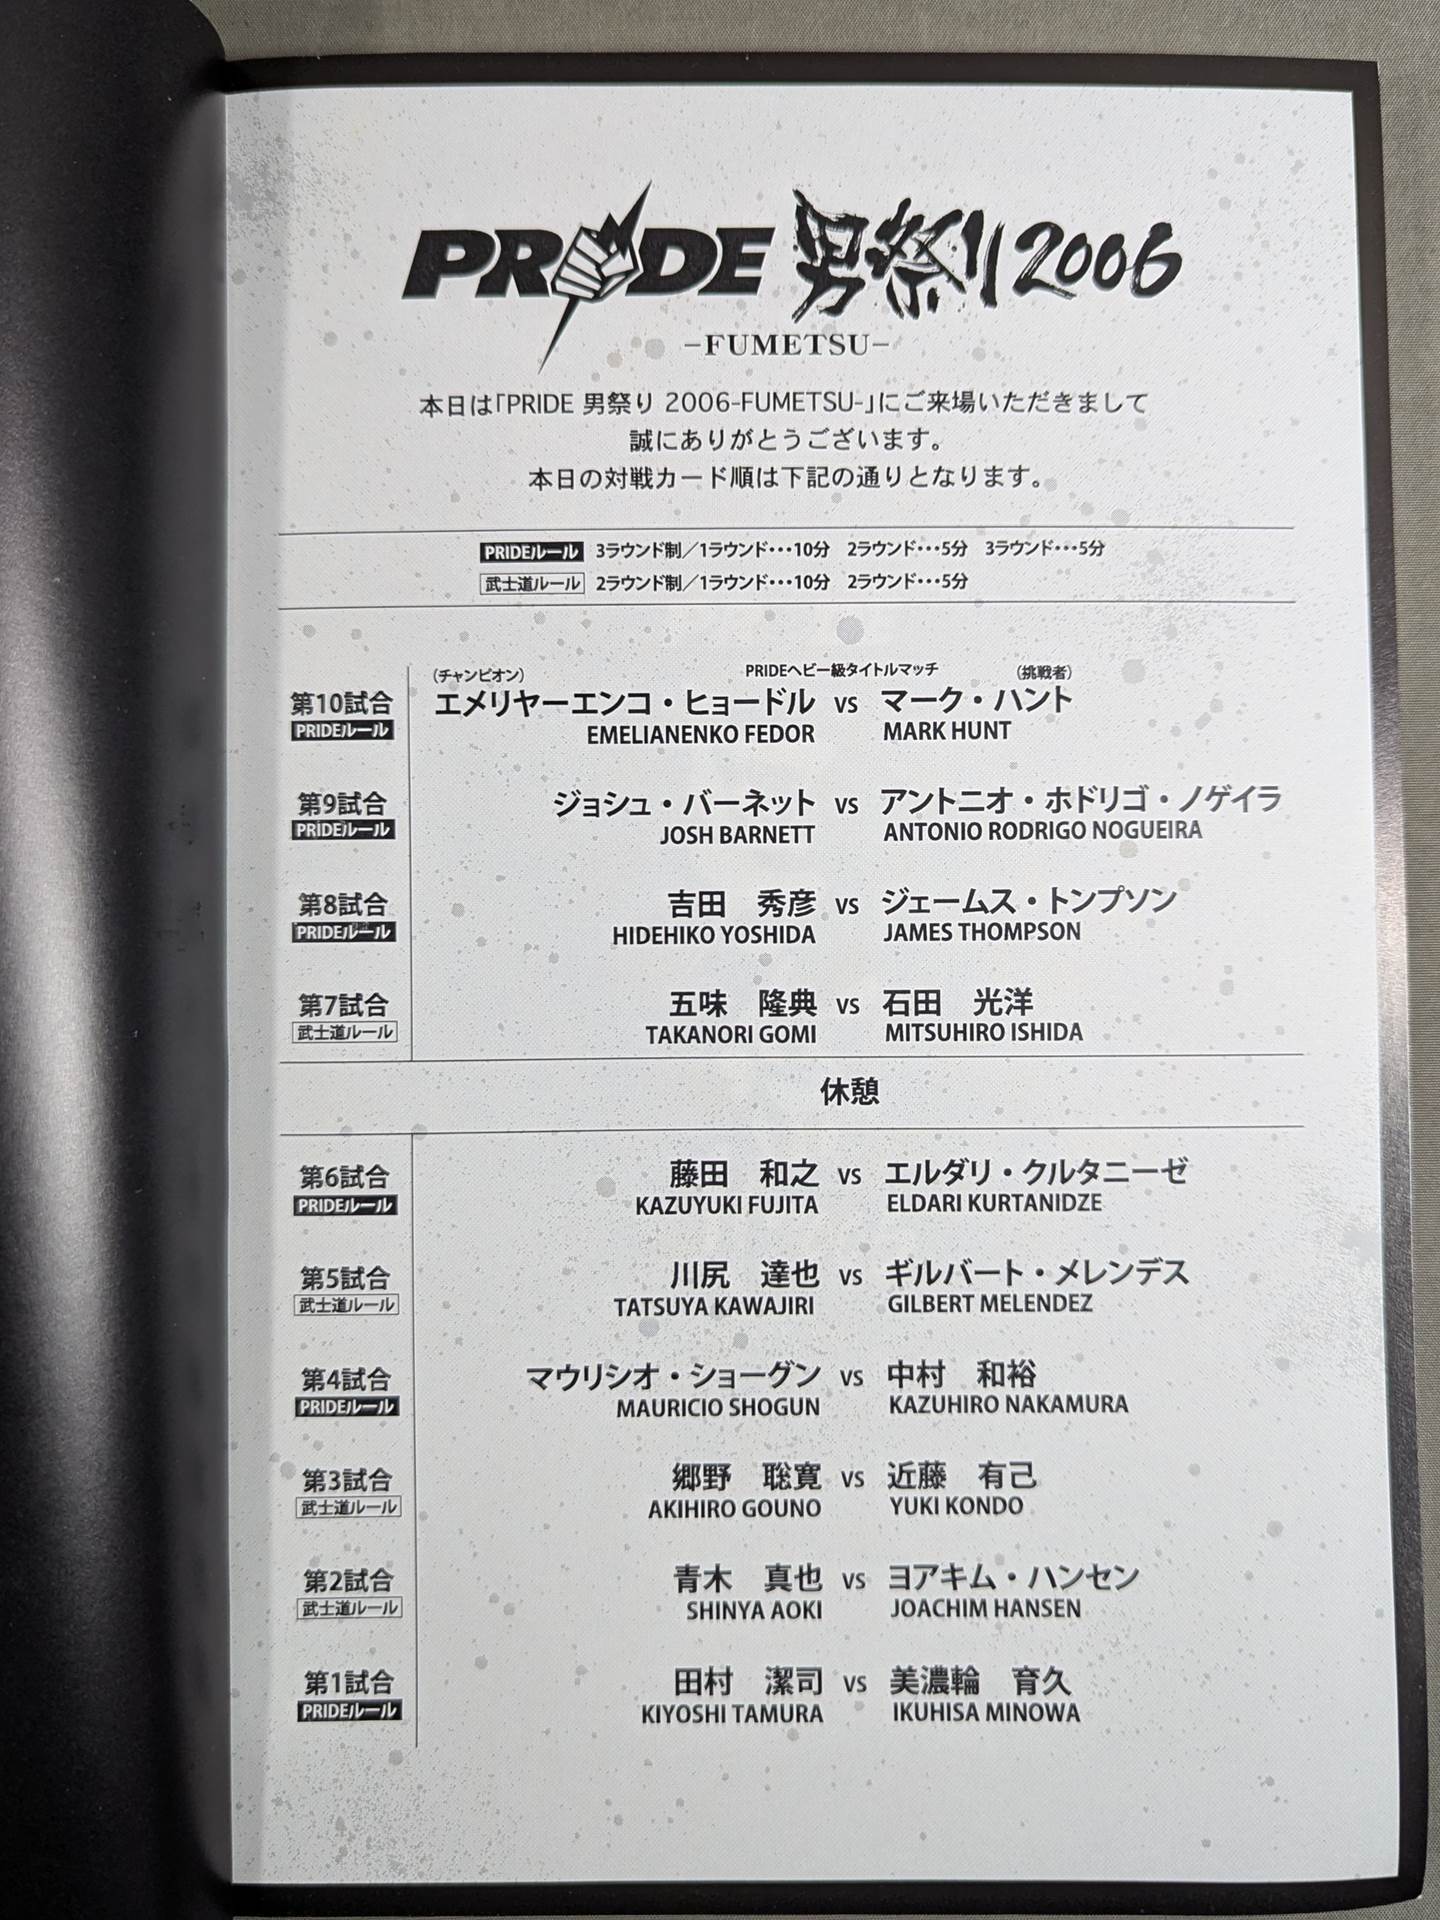 PRIDE 男祭り2006
-FUMETSU-
本日は「PRIDE 男祭り 2006-FUMETSU-」にご来場いただきまして
誠にありがとうございます。
本日の対戦カード順は下記の通りとなります。
PRIDEルール 3ラウンド制／1ラウンド・・・10分 2ラウンド・・・5分 3ラウンド・・・5分
武士道ルール 2ラウンド制／1ラウンド・・・10分 2ラウンド・・・5分
（チャンピオン） PRIDEヘビー級タイトルマッチ （挑戦者）
第10試合 エメリヤーエンコ・ヒョードル VS マーク・ハント
PRIDEルール EMELIANENKO FEDOR MARK HUNT
第9試合 ジョシュ・バーネット VS アントニオ・ホドリゴ・ノゲイラ
PRIDEルール JOSH BARNETT ANTONIO RODRIGO NOGUEIRA
第8試合 吉田 秀彦 VS ジェームス・トンプソン
PRIDEルール HIDEHIKO YOSHIDA JAMES THOMPSON
第7試合 五味 隆典 VS 石田 光洋
武士道ルール TAKANORI GOMI MITSUHIRO ISHIDA
休憩
第6試合 藤田 和之 VS エルダリ・クルタニーゼ
PRIDEルール KAZUYUKI FUJITA ELDARI KURTANIDZE
第5試合 川尻 達也 VS ギルバート・メレンデス
武士道ルール TATSUYA KAWAJIRI GILBERT MELENDEZ
第4試合 マウリシオ・ショーグン VS 中村 和裕
PRIDEルール MAURICIO SHOGUN KAZUHIRO NAKAMURA
第3試合 郷野 聡寛 VS 近藤 有己
武士道ルール AKIHIRO GOUNO YUKI KONDO
第2試合 青木 真也 VS ヨアキム・ハンセン
武士道ルール SHINYA AOKI JOACHIM HANSEN
第1試合 田村 潔司 VS 美濃輪 育久
PRIDEルール KIYOSHI TAMURA IKUHISA MINOWA